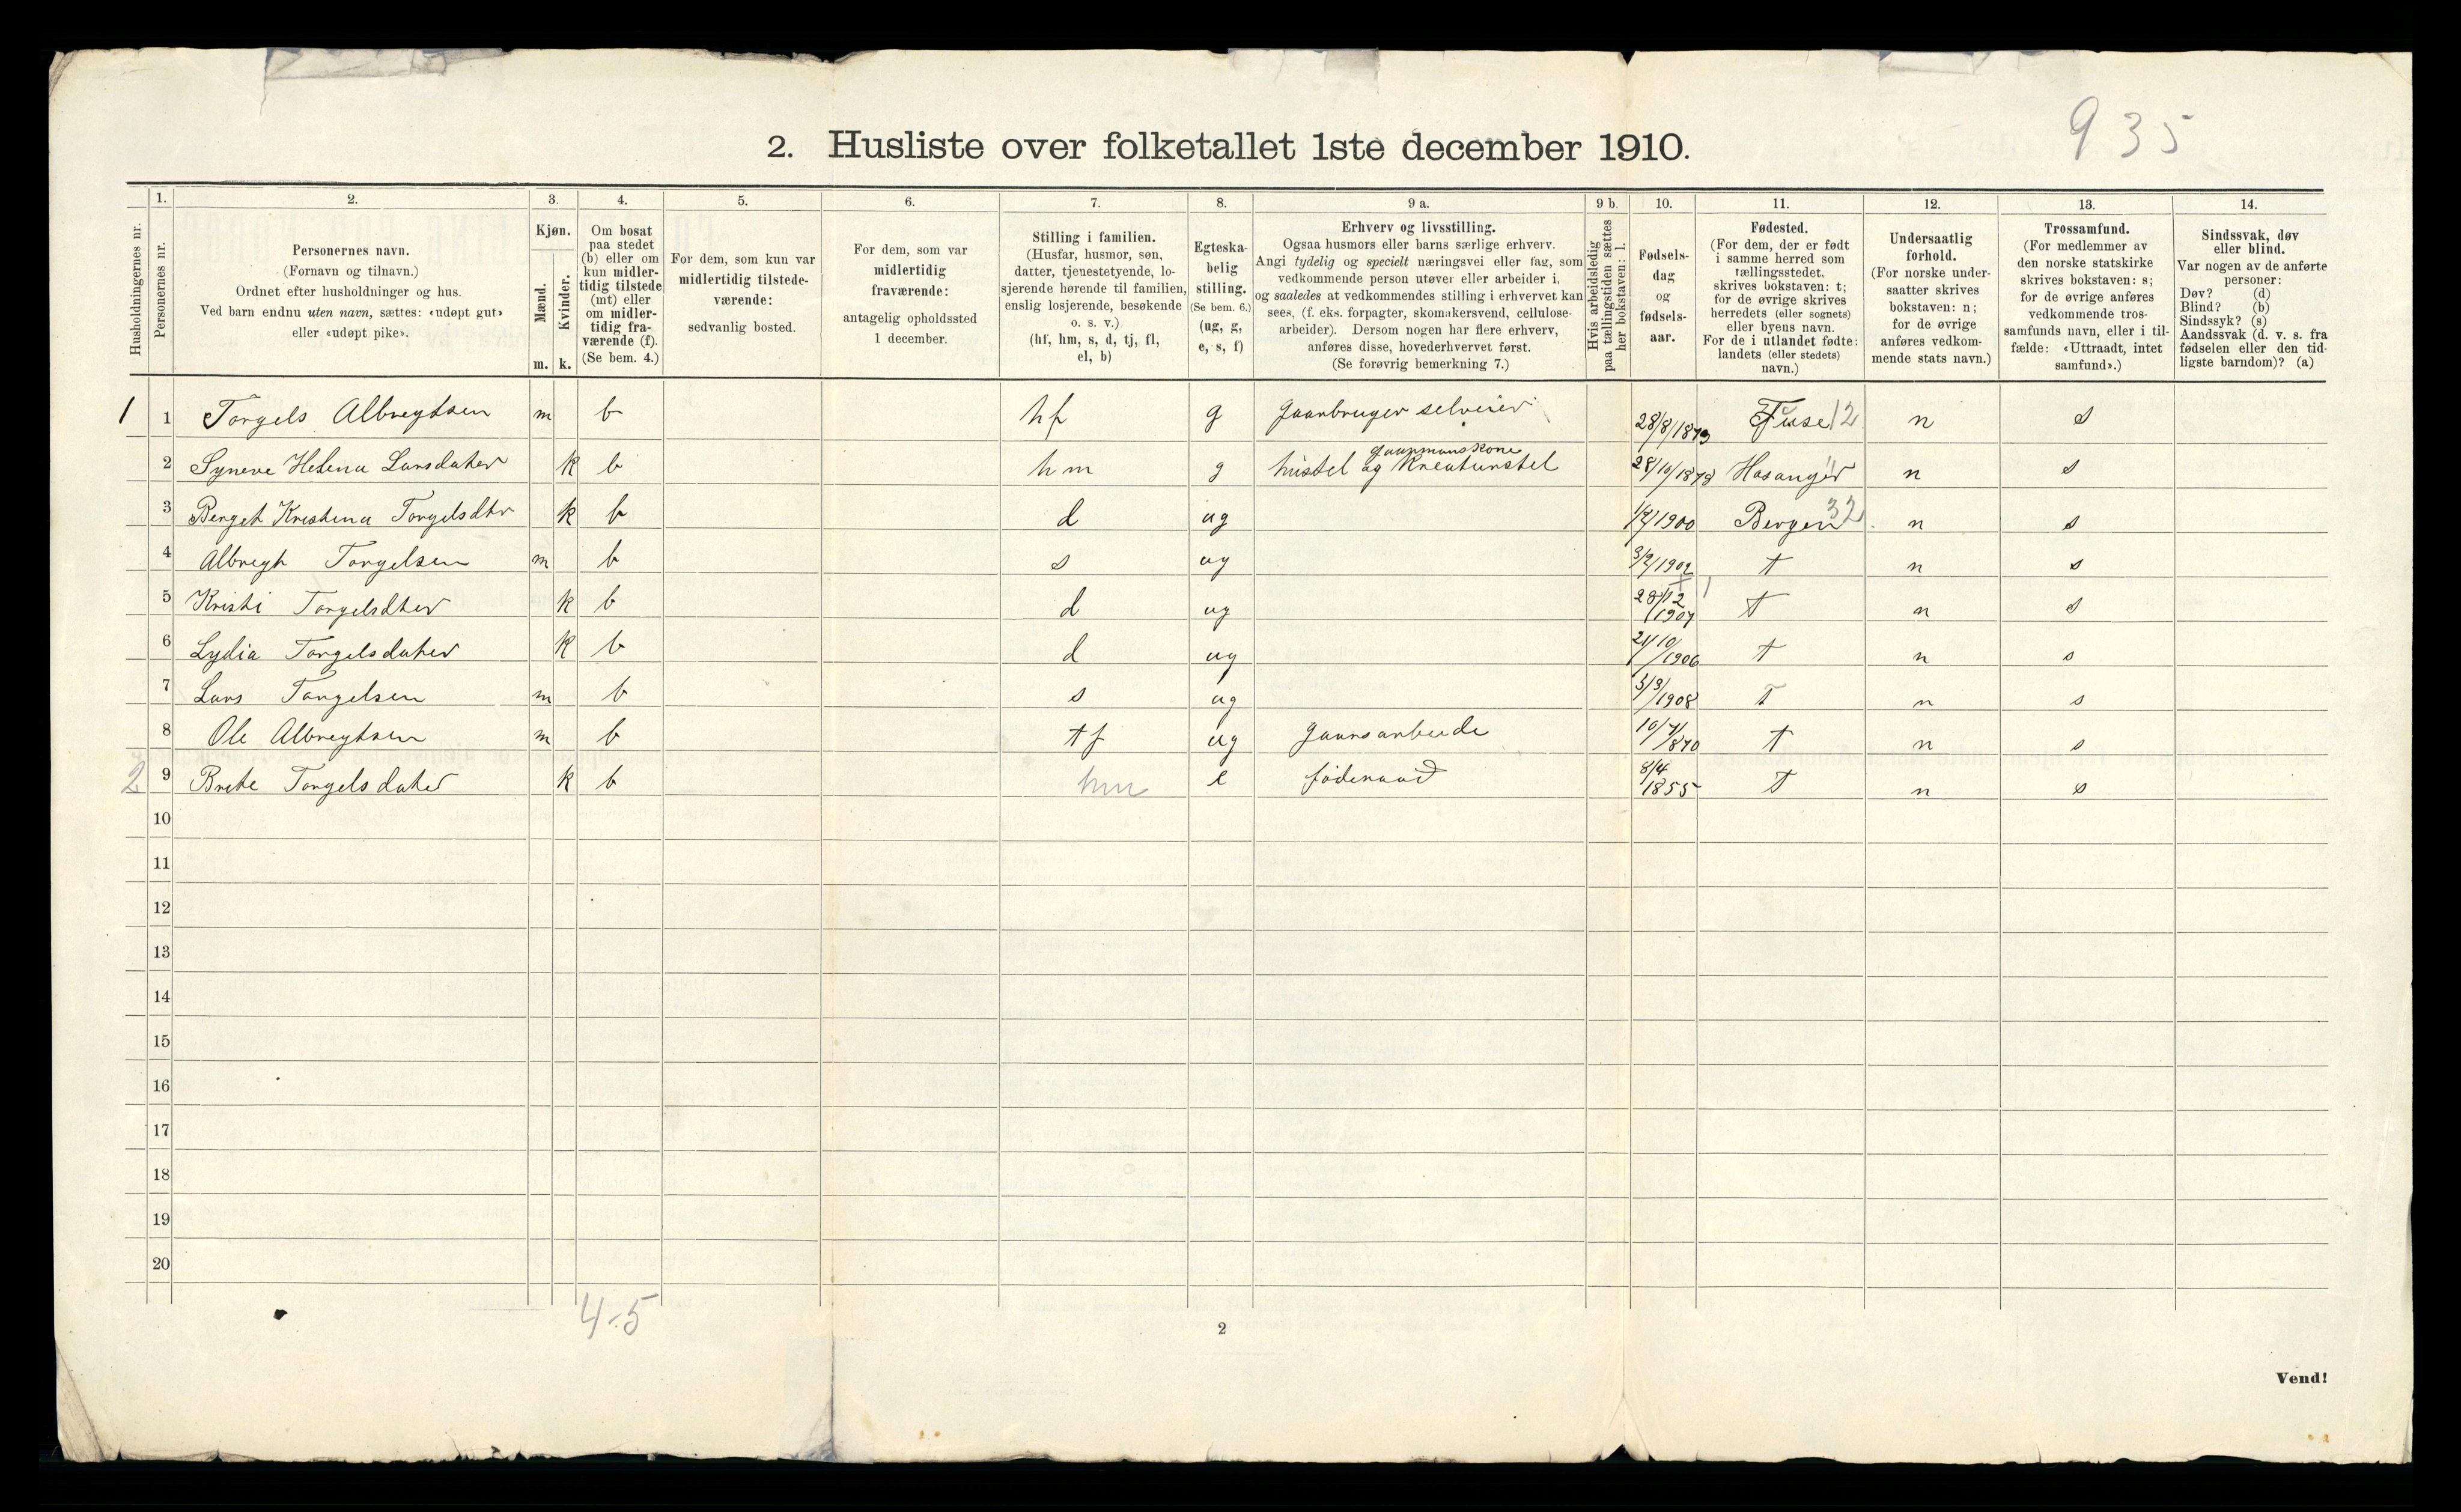 935
2. Husliste over folketallet 1ste december 1910.
Husholdningernes nr.
1.
Personernes nr.
2.
Personernes navn.
(Fornavn og tilnavn.)
Ordnet efter husholdninger og hus.
Ved barn endnu uten navn, sættes: «udøpt gut»
eller «udøpt pike».
3.
Kjøn.
Mænd.
Kvinder.
m. k.
4.
Om bosat
paa stedet
(b) eller om
kun midler-
tidig tilstede
(mt) eller
om midler-
tidig fra-
værende (f).
(Se bem. 4.)
5.
For dem, som kun var
midlertidig tilstede-
værende:
sedvanlig bosted.
6.
For dem, som var
midlertidig
fraværende:
antagelig opholdssted
1 december.
7.
Stilling i familien.
(Husfar, husmor, søn,
datter, tjenestetyende, lo-
sjerende hørende til familien,
enslig losjerende, besøkende
o. s. v.)
(hf, hm, s, d, tj, fl,
el, b)
8.
Egteska-
belig
stilling.
(Se bem. 6.)
(ug, g,
e, s, f)
9 a.
Erhverv og livsstilling.
Ogsaa husmors eller barns særlige erhverv.
Angi tydelig og specielt næringsvei eller fag, som
vedkommende person utøver eller arbeider i,
og saaledes at vedkommendes stilling i erhvervet kan
sees, (f. eks. forpagter, skomakersvend, cellulose-
arbeider). Dersom nogen har flere erhverv,
anføres disse, hovederhvervet først.
(Se forøvrig bemerkning 7.)
9 b.
Hvis arbeidsledig
paa tællingstiden sættes
her bokstaven: l.
10.
Fødsels-
dag
og
fødsels-
aar.
11.
Fødested.
(For dem, der er født
i samme herred som
tællingsstedet,
skrives bokstaven: t;
for de øvrige skrives
herredets (eller sognets)
eller byens navn.
For de i utlandet fødte:
landets (eller stedets)
navn.)
12.
Undersaatlig
forhold.
(For norske under-
saatter skrives
bokstaven: n;
for de øvrige
anføres vedkom-
mende stats navn.)
13.
Trossamfund.
(For medlemmer av
den norske statskirke
skrives bokstaven: s;
for de øvrige anføres
vedkommende tros-
samfunds navn, eller i til-
fælde: «Uttraadt, intet
samfund».)
14.
Sindssvak, døv
eller blind.
Var nogen av de anførte
personer:
Døv? (d)
Blind? (b)
Sindssyk? (s)
Aandssvak (d. v. s. fra
fødselen eller den tid-
ligste barndom)? (a)
1 1 Torgels Albregtsen m b hf g gaarbruger selveier 28/8/1873 Fuse 12 n s
gaarmanskone
2 Syneve Helena Larsdater k b hm g hustel og Kreaturstel 28/10/1878 Hosanger n s
3 Berget Kristina Torgelsdtr k b d ug 1900 Bergen 32 n s
4 Albregt Torgelsen m b s ug 3/2/1902 t n s
5 Kristi Torgelsdter k b d ug 28/12 1904 t n s
6 Lydia Torgelsdater k b d ug 21/10/1906 t n s
7 Lars Torgelsen m b s ug 3/3/1908 t n s
8 Ole Albregtsen m b tf ug gaarsarbeide 10/7/1870 t n s
2 9 Brete Torgelsdater k b hm e föderaad 8/4 1855 t n s
10
11
12
13
14
15
16
17
18
19
20
4-5
2
Vend!